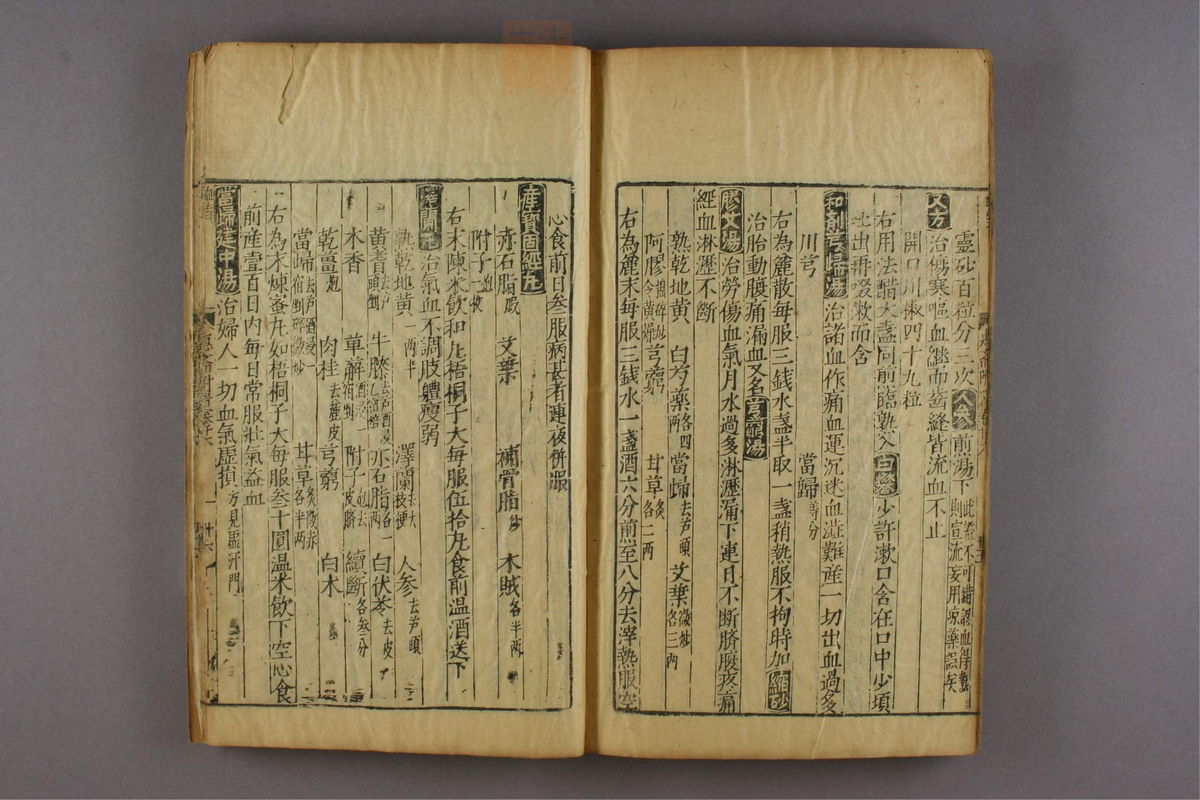 靈砂百粒分三次人參煎湯下此證不可錯認血得熱則宣流妄用凉藥誤矣
又方治傷寒嘔血繼而齒縫皆流血不止
開口川椒四十九粒
右用法醋大盞同煎臨熟入白礬少許漱口含在口中少頃
吐出再啜漱而含
和劑芎歸湯治諸血作痛血運沉迷血澁難産一切出血過多
川芎 當歸等分
右為麄散每服三錢水盞半取一盞稍熱服不拘時加縮砂
治胎動腹痛漏血又名芎藭湯
膠艾湯治勞傷血氣月水過多淋瀝漏下連日不断臍腹疼痛
經血淋瀝不断
熟乾地黄 白芍藥各四兩 當歸去芦頭 艾葉微炒各三兩
阿膠 芎藭 甘草炙各二兩
右為麄末每服三錢水一盞酒六分煎至八分去滓熱服空
心食前日叁服病甚者連夜併服
産寶固經丸
赤石脂煅 艾葉 補骨脂炒 木賊各半兩
附子一枚炮
右末陳米飲和丸梧桐子大每服伍拾丸食前温酒送下
治氣血不調肢軆瘦弱
熟乾地黄一兩半 澤蘭去大枝梗 人參去芦頭
黄耆去芦頭剉 牛膝 赤石脂各一兩 白伏苓去皮
木香 萆薢 附子炮去皮臍 續斷各叁分
乾薑炮 肉桂去麄皮 芎藭 白木
當歸 甘草炙微赤各半兩
右為末煉蜜丸如梧桐子大每服叁十圓温米飲下空心食
前産壹百日内每日常服壯氣益血
當歸建中湯治婦人一切血氣虛損方見虛汗門